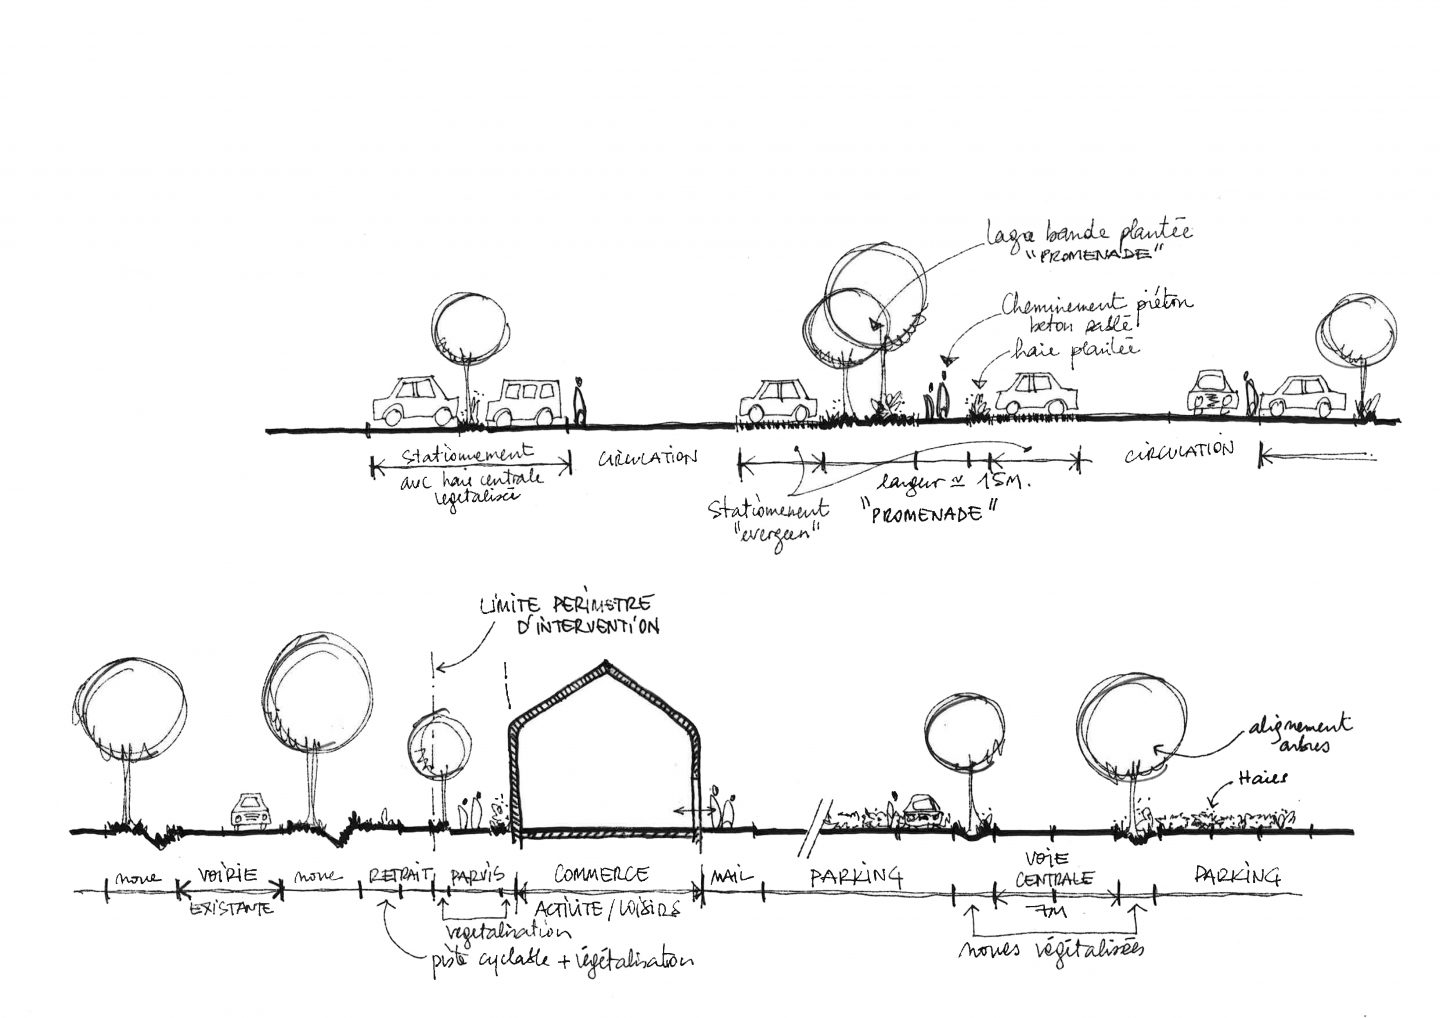 Large bande plantée
"PROMENADE"
Cheminement piéton
beton sablé
haie plantée
Stationnement
avec haie centrale
végétalisée
CIRCULATION
Stationnement
"evergeen"
largeur ≃ 15M.
"PROMENADE"
CIRCULATION
LIMITE PERIMETRE
D'INTERVENTION
alignement
arbres
Haies
noue
VOIRIE
EXISTANTE
noue
RETRAIT
PARVIS
COMMERCE
ACTIVITE/LOISIRS
MAIL
PARKING
VOIE
CENTRALE
7M
PARKING
végétalisation
piste cyclable + végétalisation
noues végétalisées